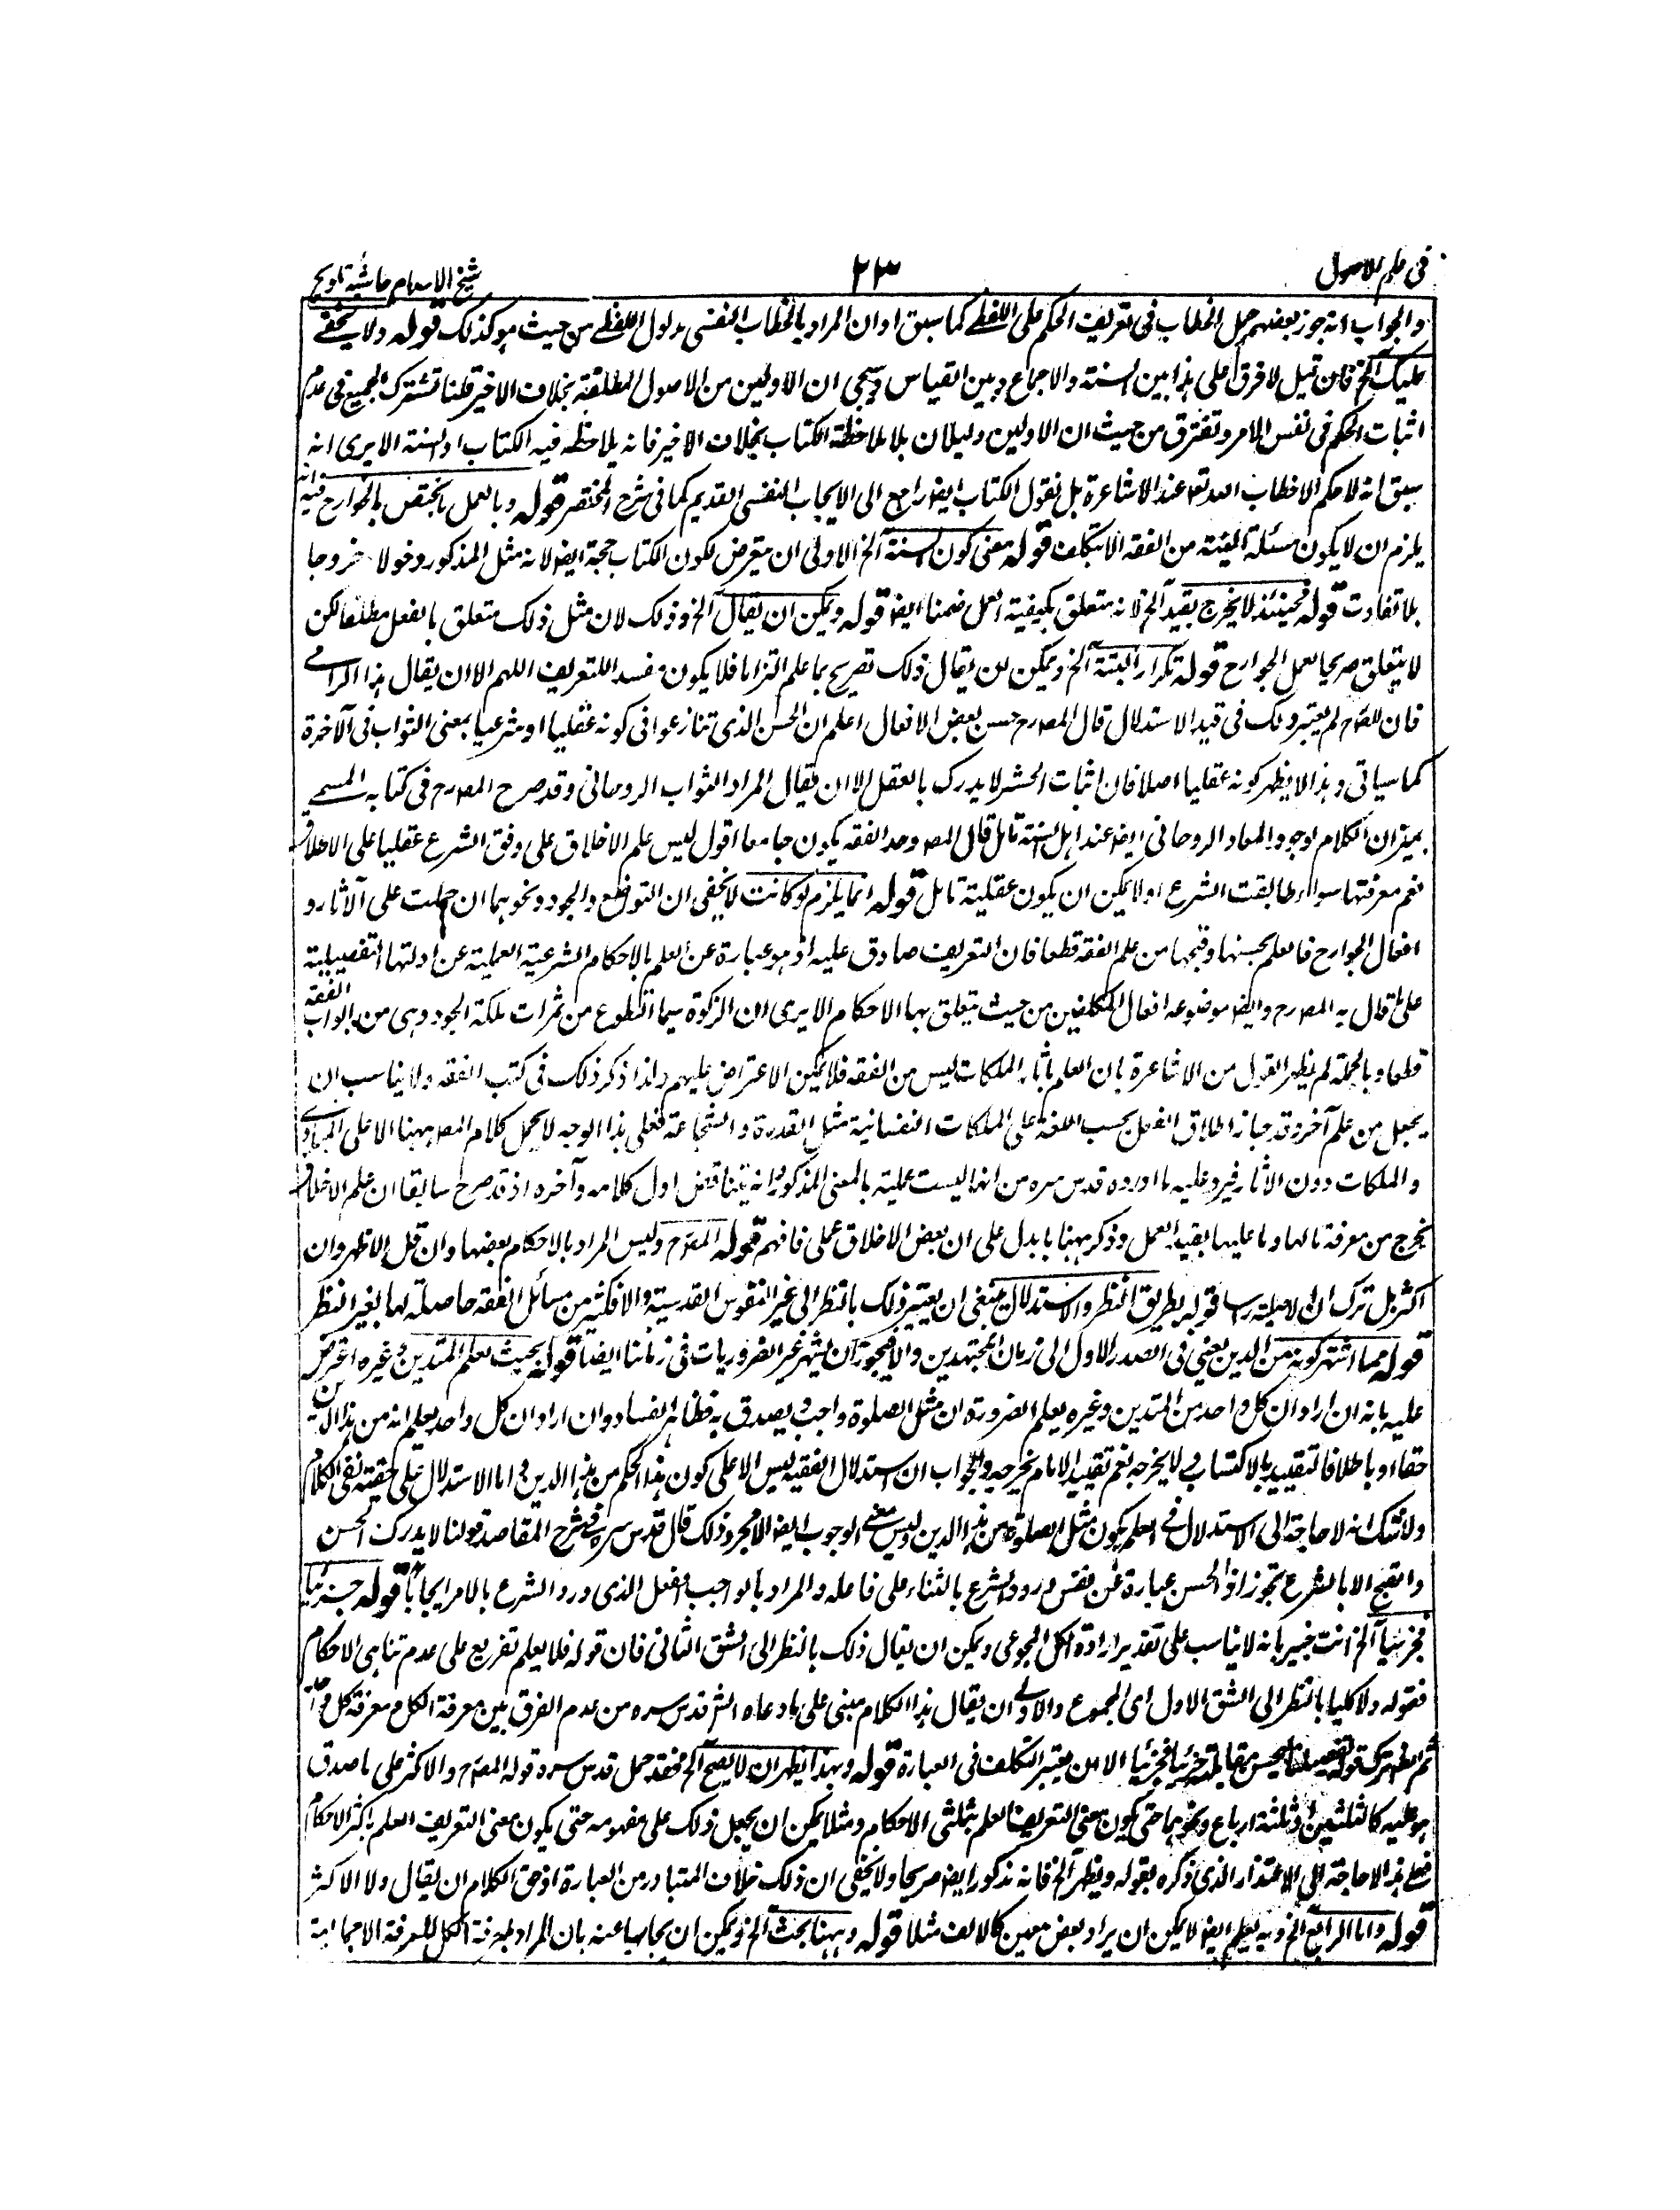 في علم الاصول
٢٣
شيخ الاسلام حاشية تلويح
والجواب انه جوز بعضهم حمل الخطاب فى تعريف الحكم على اللفظے كما سبق او ان المراد بالخطاب النفسى مدلول اللفظے من حيث هو كذلك قوله ولا يخفے
عليك آلخ فان قيل لا فرق على هذا بين السنته والاجماع وبين القياس وسيجى ان الاولين من الاصول المطلقة بخلاف الاخير قلنا تشترك الجميع فى عدم
اثبات الحكم فى نفس الامر وتفترق من حيث ان الاولين دليلان بلا ملاحظة الكتاب بخلاف الاخير فانه يلاحظ فيه الكتاب او السنة الا يرى انه
سبق انه لا حكم الا خطاب الله تعم عند الاشاعرة بل نقول الكتاب ايضا راجع الى الايجاب النفسى القديم كما فى شرح المختصر قوله وبالعمل يختص بالجوارح فيه انه
يلزم ان لا يكون مسئلة النية من الفقه الا بتكلف قوله معنى كون السنة آلخ الاولى ان يتعرض لكون الكتاب حجة ايضا لانه مثل المذكور دخولا خروجا
بلا تفاوت قوله فحينئذ لا يخرج بقيد آلخ لانه متعلق بكيفية العمل ضمنا ايضا قوله ويمكن ان يقال آلخ وذلك لان مثل ذلك متعلق بالفعل مطلقا لكن
لا يتعلق صريحا بعمل الجوارح قوله تكرار البتة آلخ ويمكن ان يقال ذلك تصريح بما علم التزاما فلا يكون مفسدا للتعريف اللهم الا ان يقال هذا الزامے
فان المصرح لم يعتبر ذلك فى قيد الاستدلال قال المصرح حسن بعض الافعال اعلم ان الحسن الذى تنازعوا فى كونه عقليا او شرعيا بمعنى الثواب فى الآخرة
كما سياتى وهذا لا يظهر كونه عقليا اصلا فان اثبات الحشر لا يدرك بالعقل الا ان يقال المراد الثواب الروحانى وقد صرح المصرح فى كتابه المسمے
بميزان الكلام بوجود المعاد الروحانى ايضا عند اهل السنة تامل قال المصر وحد الفقه يكون جامعا اقول ليس علم الاخلاق على وفق الشرع عقليا على الاطلاق
نعم معرفتها سواء طابقت الشرع اولا يمكن ان يكون عقلية تامل قوله انما يلزم لو كانت لا يخفى ان التواضع والجود ونحوهما ان حملت على الآثار و
افعال الجوارح فالعلم بحسنها وقبحها من علم الفقه قطعا فان التعريف صادق عليه اذ هو عبارة عن العلم بالاحكام الشرعية العملية عن ادلتها التفصيلية
على ما قال به المصرح وايضا موضوعه افعال المكلفين من حيث يتعلق بها الاحكام الا يرى ان الزكوة سيما التطوع من ثمرات ملكة الجود وهى من ابواب الفقه
قطعا وبالجملة لم يظهر القول من الاشاعرة بان العلم بآثار الملكات ليس من الفقه فلا يمكن الاعتراض عليهم ولذا ذكر ذلك فى كتب الفقه ولا يناسب ان
يجعل من علم آخر وقد جاز اطلاق الفعل بحسب اللغة على الملكات النفسانية مثل القدرة والشجاعة فعلى هذا الوجه لا يحمل كلام المصر ههنا الا على المبادى
والملكات دون الآثار فيرد عليه ما اورده قدس سره من انها ليست عملية بالمعنى المذكور وانه يناقض اول كلامه وآخره اذ قد صرح سابقا ان علم الاخلاق
يخرج من معرفة مالها وما عليها بقيد العمل وذكر ههنا ما يدل على ان بعض الاخلاق عملى فافهم قوله المصرح وليس المراد بالاحكام بعضها وان قل الاظهر وان
اكثر بل ترك ان الوصلية راسا قوله بطريق النظر والاستدلال ينبغى ان يعتبر ذلك بالنظر الى غير النفوس القدسية والا فكثير من مسائل الفقه حاصلة لها بغير النظر
قوله مما اشتهر كونه من الدين يعنى فى الصدر الاول الى زمان المجتهدين والا فيجوز ان يشتهر غير الضروريات فى زماننا ايضا قوله بحيث يعلم المتدين وغيره اعترض
عليه بانه ان اراد ان كل واحد من المتدين وغيره يعلم الضرورة ان مثل الصلوة واجب ويصدق به فظاهر الفساد وان اراد ان كل واحد يعلم انه من هذا الدين
حقا او باطلا فالتقييد بالاكتسابى لا يخرجه نعم تقييد الامام يخرجه والجواب ان استدلال الفقيه ليس الا على كون هذا الحكم من هذا الدين واما الاستدلال على حقيته ففى الكلام
ولا شك انه لا حاجة الى الاستدلال فى العلم بكون مثل الصلوة من هذا الدين وليس معنے الوجوب ايضا الا مجرد ذلك قال قدس سره فى شرح المقاصد قولنا لا يدرك الحسن
والقبح الا بالشرع تجوز اذ الحسن عبارة عن نفس ورود الشرع بالثناء على فاعله والمراد بالواجب الفعل الذى ورد الشرع بالامر ايجابا قوله جزئيا
فجزئيا آلخ انت خبير بانه لا يناسب على تقدير ارادة الكل المجموعى ويمكن ان يقال ذلك بالنظر الى الشق الثانى فان قوله فلا يعلم تفريع على عدم تناهى الاحكام
فقوله ولا كليا بالنظر الى الشق الاول اى المجموع والاولے ان يقال هذا الكلام مبنى على ما ادعاه الشر قدس سره من عدم الفرق بين معرفة الكل ومعرفة كل واحد
ثم الظاهر ترك قوله تفصيلا فيحسن مقابلة جزئيا فجزئيا الا من يعتبر التكلف فى العبارة قوله وبهذا يظهر ان لا يصح آلخ فقد حمل قدس سره قوله المصرح والاكثر على ما صدق
هو عليه كالثلثين وثلثة ارباع ونحوهما حتى يكون معنى التعريف العلم بثلثى الاحكام ومثلا يمكن ان يجعل ذلك على مفهومه حتى يكون معنى التعريف العلم باكثر الاحكام
فعلى هذا لا حاجة الى الاعتذار الذى ذكره بقوله ويظهر آلخ فانه مذكور ايضا صريحا ولا يخفى ان ذلك خلاف المتبادر من العبارة اذ حق الكلام ان يقال ولا الاكثر
قوله واما الرابع آلخ وبه يعلم ايضا لا يمكن ان يراد بعض معين كالالف مثلا قوله وههنا بحث آلخ ويمكن ان يجاب عنه بان المراد بمعرفة الكل المعرفة الاجمالية